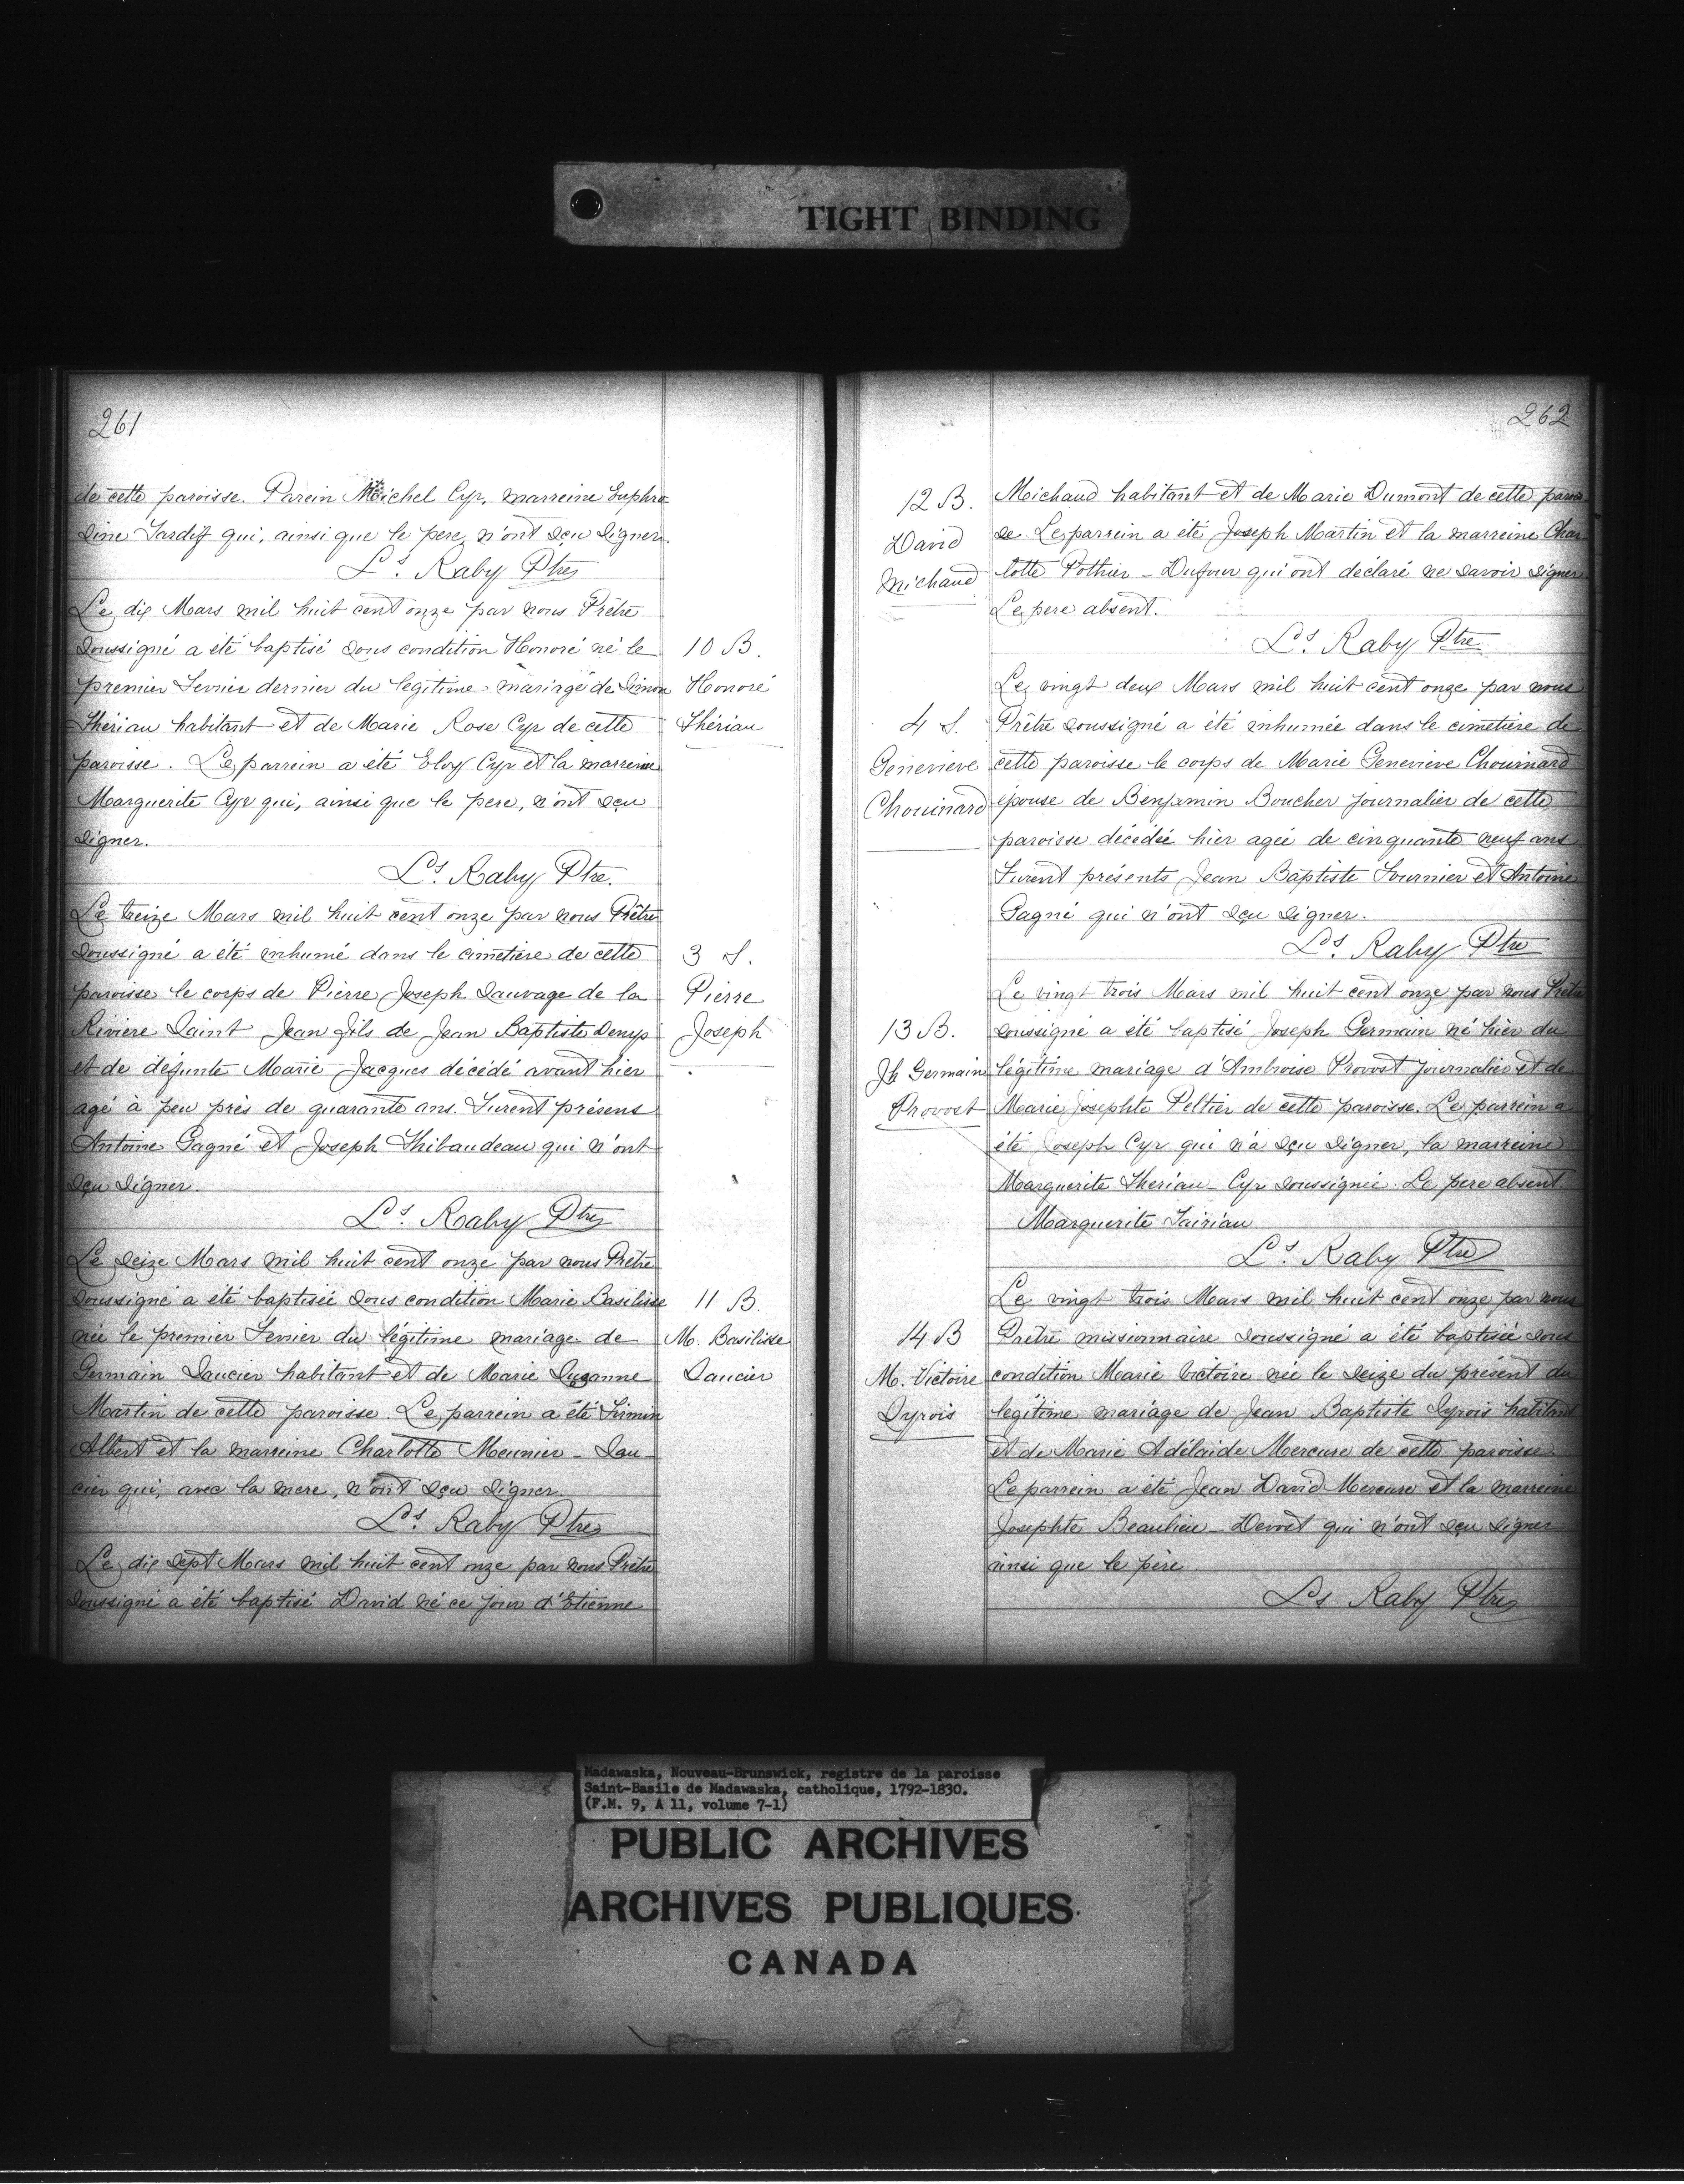 TIGHT BINDING
261
de cette paroisse. Parein Michel Cyr, marreine Euphro
sine Tardif qui, ainsi que le pere, n'ont sçu signer.
Ls. Raby Ptre
Le dix Mars mil huit cent onze par nous Prêtre
soussigné a été baptisé sous condition Honoré né le
premier Fevrier dernier du légitime mariage de Simon
Thériau habitant et de Marie Rose Cyr de cette
paroisse. Le parrein a été Eloy Cyr et la marreine
Marguerite Cyr qui, ainsi que le pere, n'ont sçu
signer.
Ls. Raby Ptre.
Le treize Mars mil huit cent onze par nous Prêtre
soussigné a été inhumé dans le cimetière de cette
paroisse le corps de Pierre Joseph Sauvage de la
Riviere Saint Jean fils de Jean Baptiste Denys
et de défunte Marie Jacques décédé avant hier
agé à peu près de quarante ans. Furent présens
Antoine Gagné et Joseph Thibaudeau qui n'ont
sçu signer.
Ls. Raby Ptre
Le seize Mars mil huit cent onze par nous Prêtre
soussigné a été baptisée sous condition Marie Basilisse
née le premier Fevrier du légitime mariage de
Germain Saucier habitant et de Marie Suzanne
Martin de cette paroisse. Le parrein a été Firmin
Albert et la marreine Charlotte Meunier - Sau-
cier qui, avec la mere, n'ont sçu signer.
Ls. Raby Ptre
Le dix sept Mars mil huit cent onze par nous Prêtre
soussigné a été baptisé David né ce jour d'Etienne
10 B.
Honoré
Thériau
3 S.
Pierre
Joseph
11 B.
M. Basilisse
Saucier
262
12 B.
David
Michaud
4 S.
Genevieve
Chouinard
13 B.
Jh Germain
Provost
14 B
M. Victoire
Syrois
Michaud habitant et de Marie Dumont de cette parois
se. Le parrein a été Joseph Martin et la marreine Char
lotte Pothier - Dufour qui ont déclaré ne savoir signer
Le pere absent.
Ls. Raby Ptre
Le vingt deux Mars mil huit cent onze par nous
Prêtre soussigné a été inhumée dans le cimetière de
cette paroisse le corps de Marie Genevieve Chouinard
épouse de Benjamin Boucher journalier de cette
paroisse décédée hier agée de cinquante neuf ans
Furent présents Jean Baptiste Fournier et Antoine
Gagné qui n'ont sçu signer.
Ls. Raby Ptre
Le vingt trois Mars mil huit cent onze par nous Prêtre
soussigné a été baptisé Joseph Germain né hier du
légitime mariage d'Ambroise Provost journalier et de
Marie Josephte Peltier de cette paroisse. Le parrein a
été Joseph Cyr qui n'a sçu signer, la marreine
Marguerite Theriau - Cyr soussignée. Le pere absent.
Marguerite Tairiau
Ls. Raby Ptre
Le vingt trois Mars mil huit cent onze par nous
Prêtre missionnaire soussigné a été baptisée sous
condition Marie Victoire née le seize du présent du
légitime mariage de Jean Baptiste Syrois habitant
et de Marie Adélaide Mercure de cette paroisse.
Le parrein a été Jean David Mercure et la marreine
Josephte Beaulieu - Devost qui n'ont sçu signer
ainsi que le père.
Ls Raby Ptre
Madawaska, Nouveau-Brunswick, registre de la paroisse
Saint-Basile de Madawaska, catholique, 1792-1830.
(F.M. 9, A 11, volume 7-1)
PUBLIC ARCHIVES
ARCHIVES PUBLIQUES
CANADA